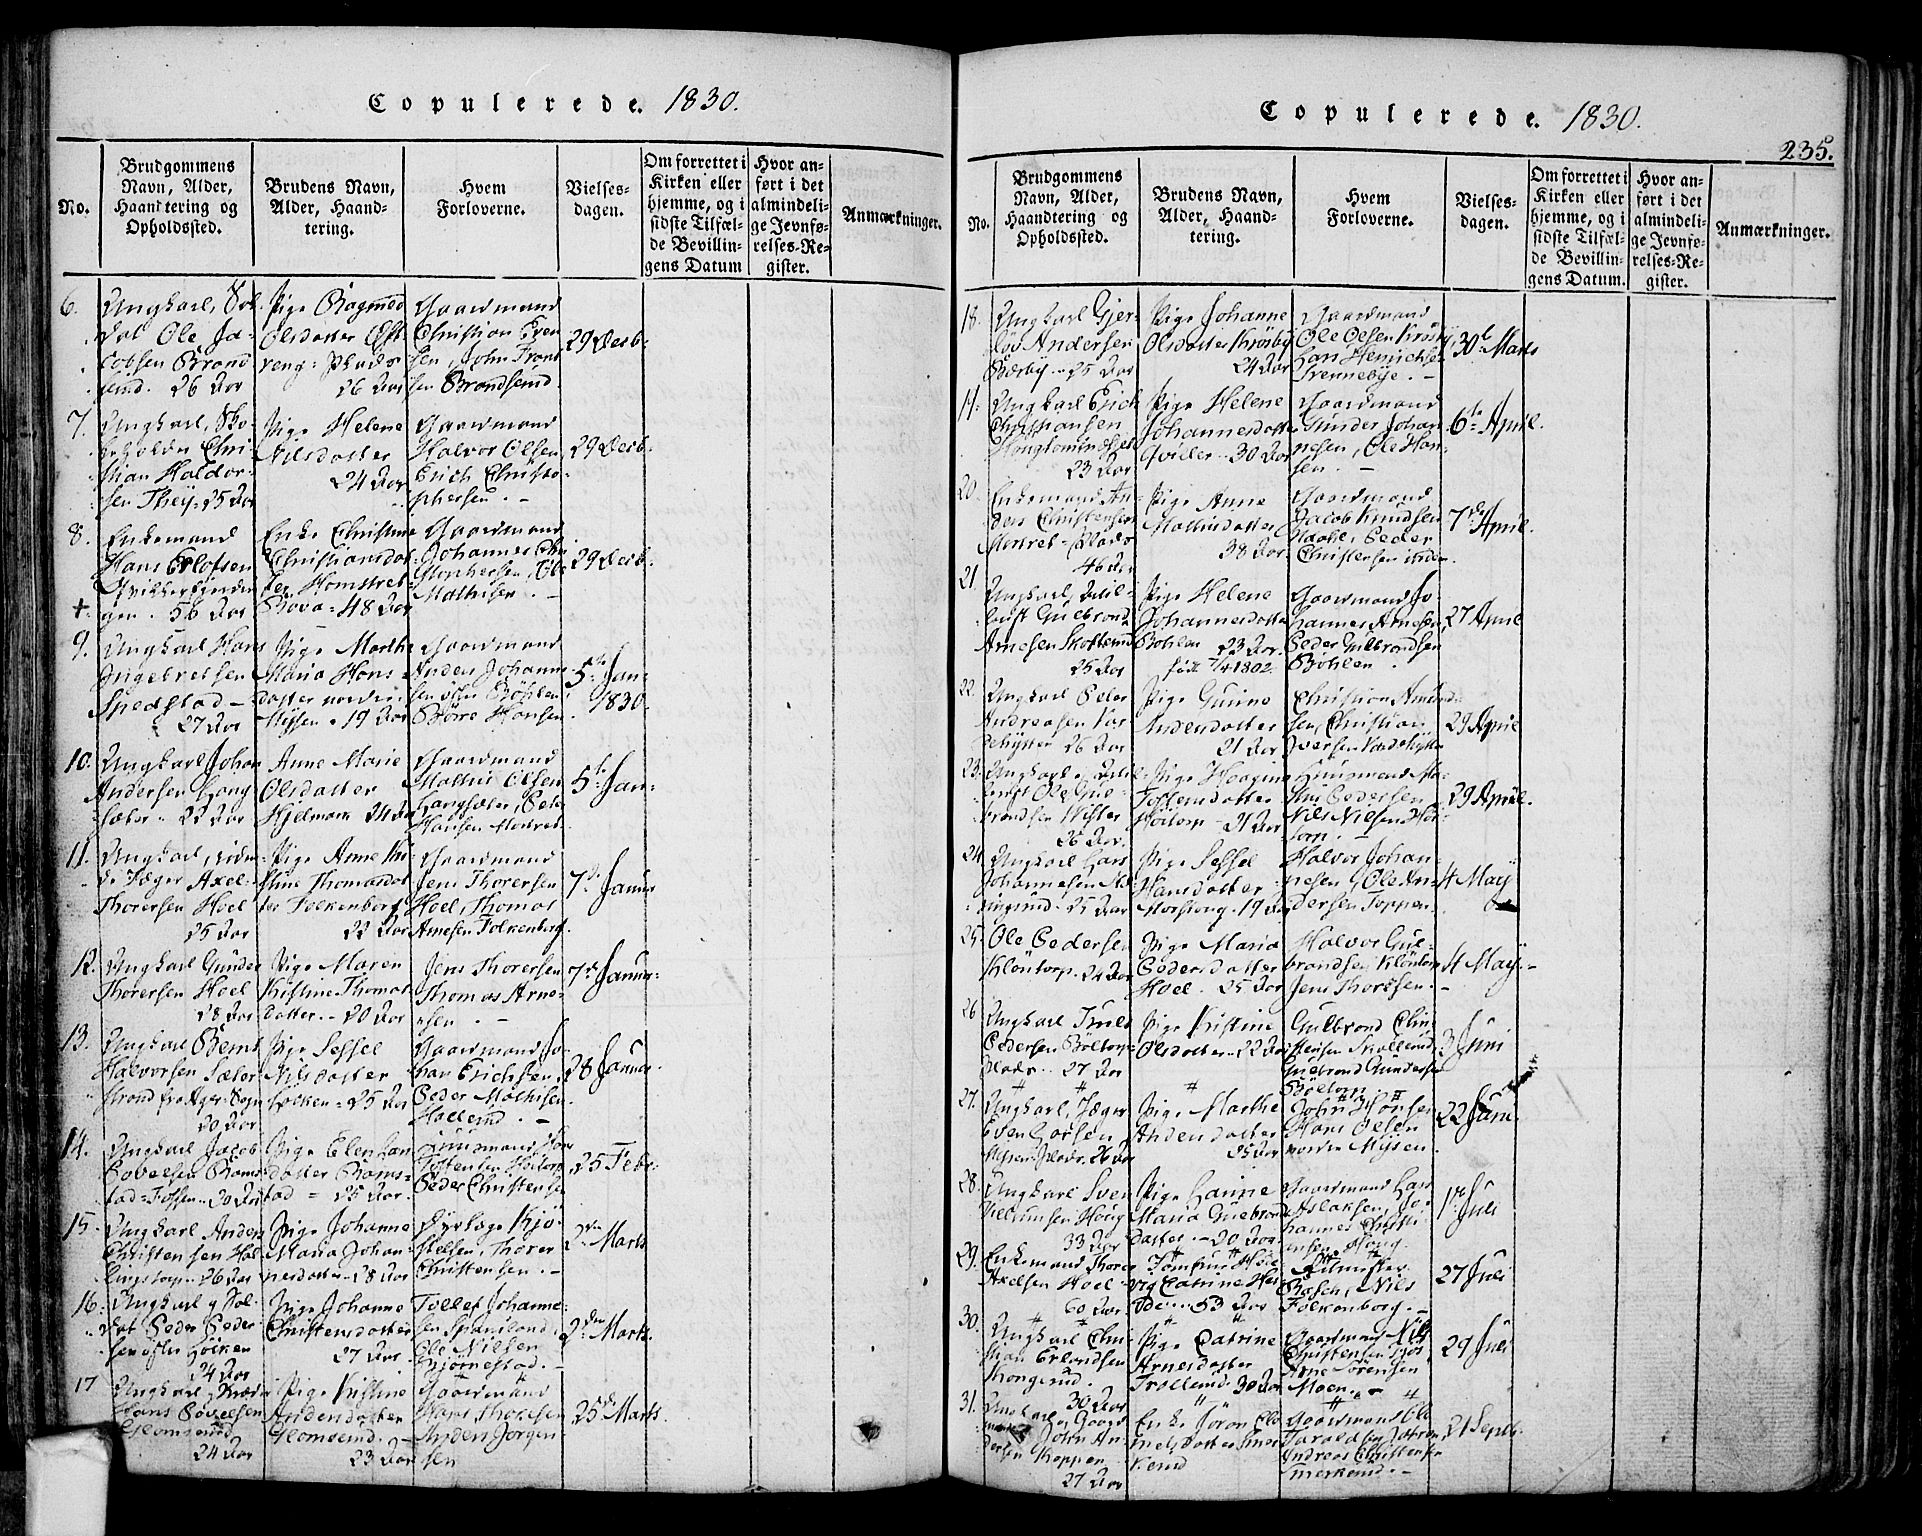 Copulerede. 1830.
No.
Brudgommens
Navn, Alder,
Haandtering og
Opholdssted.
Brudens Navn,
Alder, Haand-
tering.
Hvem
Forloverne.
Vielses-
dagen.
Om forrettet i
Kirken eller
hjemme, og i
sidste Tilfæl-
de Bevillin-
gens Datum
Hvor an-
ført i det
almindeli-
ge Jevnfø-
relses-Re-
gister.
Anmærkninger.
6.
Ungkarl, Sol
dat Ole Ja-
cobsen Brand
semd. 26 Aar
Pige Ragnild
Olsdatter
26 Aar
Gaardmand
Christian
sen, John
sen Brandsemd
29 Decb.
7.
Ungkarl,
Chri-
stian Haldor-
sen 25 Aar
Pige Helene
Nilsdatter
24 Aar
Gaardmand
Halvor Olsen
Erich Christo-
phersen. -
29 Decb.
8.
Enkemand
Hans Erlofsen
56 Aar
Enke Christine
Christiansdat-
ter
48 Aar
Gaardmand
Johannes Chri
stophersen, Ole
Mathisen. -
29 Decb.
9.
Ungkarl Hans
Ingebretsen
Spedstad -
27 Aar
Pige Marthe
Maria Hans
datter nordre
Myssen. 19 Aar
Gaardmand
Anders Johann
sen Böhlen
Børre Hansen
5te Jan-
1830.
10.
Ungkarl Johan
Andersen Lang
sæter. 22 Aar
Anne Marie
Olsdatter
Hjelmark 24 Aar
Gaardmand
Mathis Olsen
Langsæter, Peder
Hansen
5te Jan-
11.
Ungkarl, riden-
de Jæger Axel
Thorersen Hoel
25 Aar
Pige Anne Ki-
stine Thomasdat
ter Folkenborg
22 Aar
Gaardmand
Jens Thorersen
Hoel, Thomas
Arnesen Folkenborg.
7de Januar
12.
Ungkarl Gunder
Thorersen Hoel
28 Aar
Pige Maren
Kistine Thomas
datter. - 20 Aar
Jens Thorersen
Thomas Arne-
sen. -
7de Januar
13.
Ungkarl Bernt
Halvorsen Sæter
strand fra Agers Sogn
20 Aar
Pige Sessel
Nilsdatter
25 Aar
Gaardmand Jo-
han Erichsen
Peder Mathisen
Hallerud. -
28 Januar
14.
Ungkarl Jacob
Povelsen Rams
tad 20 Aar
Pige Elen Lars
datter Rams-
tad = 25 Aar.
Huusmand
Tostensen Höitorp
Peder Christensen
25 Febr.
15.
Ungkarl Anders
Christensen Hal
lingstorp. 26 Aar
Pige Johanne
Maria Johan-
nesdatter. 28 Aar
stelsen, Thorer
Christensen. -
2den Marts
16.
Ungkarl, Sol-
dat Peder Peder
sen
24 Aar
Pige Johanne
Christensdatter
27 Aar
Tollef Johanne-
sen
Ole Nilsen
Bjørnestad. -
2den Marts.
17
Ungkarl
Hans Povelsen
Glomsrud
24 Aar
Pige Kistine
Andersdatter
Glomsrud. -
23 Aar
Gaardmand
Hans Thoresen
Anders Jørgen
sen
25de Marts.
Copulerede. 1830.
235.
No.
Brudgommens
Navn, Alder,
Haandtering og
Opholdssted.
Brudens Navn,
Alder, Haand-
tering.
Hvem
Forloverne.
Vielses-
dagen.
Om forrettet i
Kirken eller
hjemme, og i
sidste Tilfæl-
de Bevillin-
gens Datum.
Hvor an-
ført i det
almindeli-
ge Jevnfø-
relses-Re-
gister.
Anmærkninger.
18.
Ungkarl Gjer-
löv Andersen
Bærby. 25 Aar
Pige Johanne
Olsdatter Krosby
24 Aar
Gaardmand
Ole Olsen Krosby
Lars Henrichsen
30te Marts
Ungkarl Erich
Christiansen
23 Aar
Pige Helene
Johannesdatter
Qviller. 30 Aar
Gaardmand
Gunder Johan
nesen, Ole Han
sen. -
6te April.
20.
Enkemand An-
ders Christensen
46 Aar
Pige Anne
Mathisdatter
38 Aar
Gaardmand
Jacob Knudsen
Peder
Christensen
7de April.
21.
Ungkarl,
Gulbrand
Arnesen
25 Aar
Pige Helene
Johannesdatter
Böhlen 23 Aar.
født 7/4 1802.
Gaardmand Jo-
hannes Arnesen
Peder Gulbrandsen
Böhlen.
27 April
22.
Ungkarl Peder
Andreasen
26 Aar
Pige Gunine
Andersdatter
21 Aar
Christian Amund
sen, Christian
Iversen
29 April
23.
Ungkarl
Ole Gul-
brandsen
26 Aar.
Pige
Tostensdatter
Höitorp - 21 Aar
Huusmand Ma-
this Pedersen
Nils Nilsen Höi-
torp. -
29 April.
24.
Ungkarl Lars
Johannesen
25 Aar
Pige Sessel
Hansdatter
19 Aar
Halvor Johan-
nesen, Ole An-
dersen Toppen.
4 May
25.
Ole Pedersen
Klöntorp. 24 Aar
Pige Maria
Pedersdatter
Hoel. 25 Aar
Halvor Gul-
brandsen Klöntorp
Jens Thoresen. -
4 May. -
26
Ungkarl Truls
Pedersen Böltorp
27 Aar
Pige Kistine
Olsdatter. 22 Aar
Gulbrand Chri
stensen
Gulbrand Gundersen
Böltorp
3 Juni
27.
Ungkarl, Jæger
Even Larsen
26 Aar
Pige Marthe
Andersdatter
25 Aar
John Hansen
Hans Olsen
nordre Mysen
22 Juni.
28.
Ungkarl Sven
Haug
33 Aar
Pige Hanne
Maria Gulbrands
datter. - 20 Aar
Gaardmand Lars
Aslaksen, Jo-
hannes Christi-
ansen, Haug.
1te Juli
29.
Enkemand Thorer
Axelsen Hoel
60 Aar
Jomfrue Hed
vig Catrine
53 Aar
Ritmester
Rosen, Nils
Folkenborg. -
27 Juli
30.
Ungkarl Chri-
stian Erlandsen
Thongerud.
30 Aar
Pige Catrine
Arnesdatter
Trollerud. 30 Aar
Gaardmand Nils
Christensen
Arne Sörensen
Moen. -
29 Juli
31.
Ungkarl, Gaard
John An-
dersen Koppen
27 Aar
Enke Jöran
Gaardmand Ole
Andreas Christensen
21 Septb.